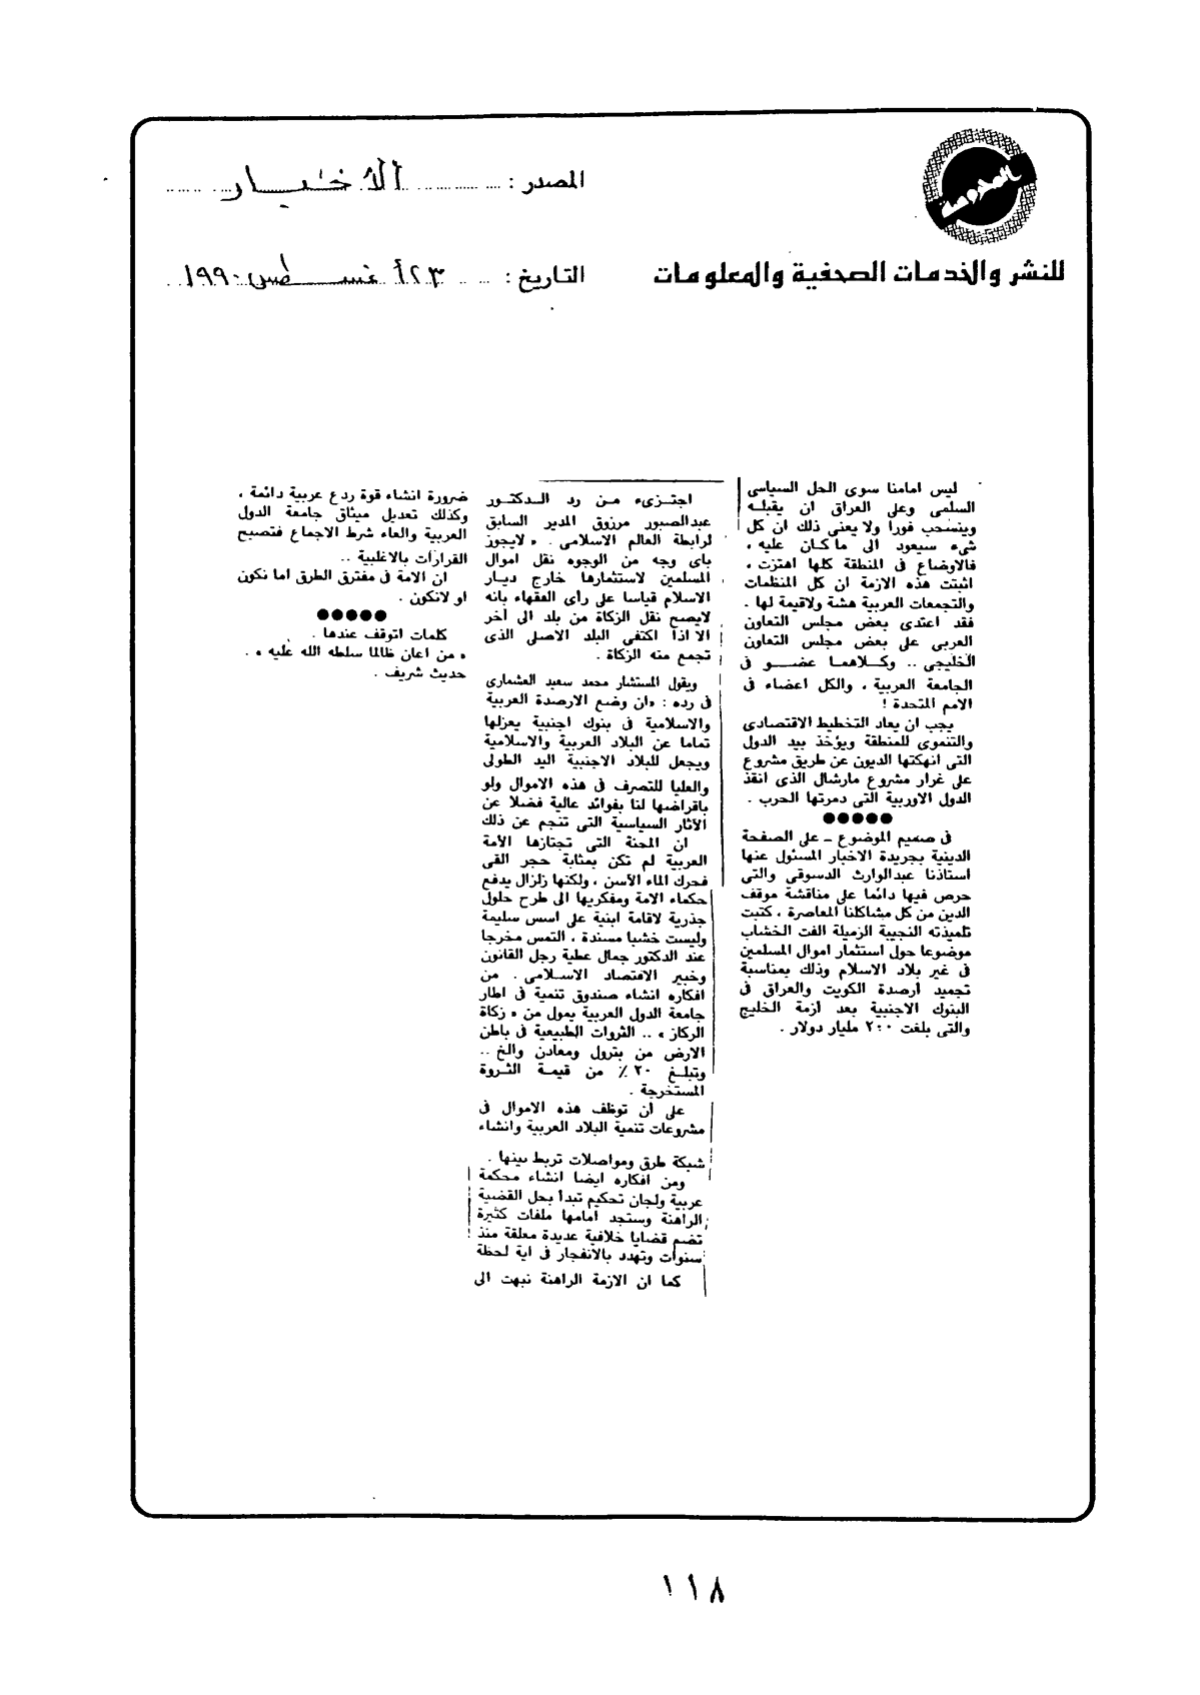 المصدر : الأخبار
للنشر والخدمات الصحفية والمعلومات
التاريخ : ٢٣ أغسطس ١٩٩٠
ليس امامنا سوى الحل السياسى
السلمى وعلى العراق ان يقبله
وينسحب فورا ولا يعنى ذلك ان كل
شىء سيعود الى ماكان عليه ،
فالاوضاع فى المنطقة كلها اهتزت ،
اثبتت هذه الازمة ان كل المنظمات
والتجمعات العربية هشة ولاقيمة لها .
فقد اعتدى بعض مجلس التعاون
العربى على بعض مجلس التعاون
الخليجى .. وكلاهما عضو فى
الجامعة العربية ، والكل اعضاء فى
الامم المتحدة !
يجب ان يعاد التخطيط الاقتصادى
والتنموى للمنطقة ويؤخذ بيد الدول
التى انهكتها الديون عن طريق مشروع
على غرار مشروع مارشال الذى انقذ
الدول الاوربية التى دمرتها الحرب .
●●●●●
فى صميم الموضوع ــ على الصفحة
الدينية بجريدة الاخبار المسئول عنها
استاذنا عبدالوارث الدسوقى والتى
حرص فيها دائما على مناقشة موقف
الدين من كل مشاكلنا المعاصرة ، كتبت
تلميذته النجيبة الزميلة الفت الخشاب
موضوعا حول استثمار اموال المسلمين
فى غير بلاد الاسلام وذلك بمناسبة
تجميد ارصدة الكويت والعراق فى
البنوك الاجنبية بعد ازمة الخليج
والتى بلغت ٢٠٠ مليار دولار .
اجتزىء من رد الدكتور
عبدالصبور مرزوق المدير السابق
لرابطة العالم الاسلامى . « لايجوز
باى وجه من الوجوه نقل اموال
المسلمين لاستثمارها خارج ديار
الاسلام قياسا على رأى الفقهاء بانه
لايصح نقل الزكاة من بلد الى آخر
الا اذا اكتفى البلد الاصلى الذى
تجمع منه الزكاة .
ويقول المستشار محمد سعيد العشمارى
فى رده : «ان وضع الارصدة العربية
والاسلامية فى بنوك اجنبية يعزلها
تماما عن البلاد العربية والاسلامية
ويجعل للبلاد الاجنبية اليد الطولى
والعليا للتصرف فى هذه الاموال ولو
باقراضها لنا بفوائد عالية فضلا عن
الآثار السياسية التى تنجم عن ذلك
ان المحنة التى تجتازها الأمة
العربية لم تكن بمثابة حجر القى
فحرك الماء الآسن ، ولكنها زلزال يدفع
حكماء الامة ومفكريها الى طرح حلول
جذرية لاقامة ابنية على اسس سليمة
وليست خشبا مسندة ، التمس مخرجا
عند الدكتور جمال عطية رجل القانون
وخبير الاقتصاد الاسلامى . من
افكاره انشاء صندوق تنمية فى اطار
جامعة الدول العربية يمول من « زكاة
الركاز » .. الثروات الطبيعية فى باطن
الارض من بترول ومعادن والخ ..
وتبلغ ٢٠ ٪ من قيمة الثروة
المستخرجة .
على ان توظف هذه الاموال فى
مشروعات تنمية البلاد العربية وانشاء
شبكة طرق ومواصلات تربط بينها .
ومن افكاره ايضا انشاء محكمة
عربية ولجان تحكيم تبدأ بحل القضية
الراهنة وستجد امامها ملفات كثيرة
تضم قضايا خلافية عديدة معلقة منذ
سنوات وتهدد بالانفجار فى اية لحظة
كما ان الازمة الراهنة نبهت الى
ضرورة انشاء قوة ردع عربية دائمة ،
وكذلك تعديل ميثاق جامعة الدول
العربية والغاء شرط الاجماع فتصبح
القرارات بالاغلبية ..
ان الامة فى مفترق الطرق اما نكون
او لانكون .
●●●●●
كلمات اتوقف عندها .
« من اعان ظالما سلطه الله عليه » .
حديث شريف .
١١٨